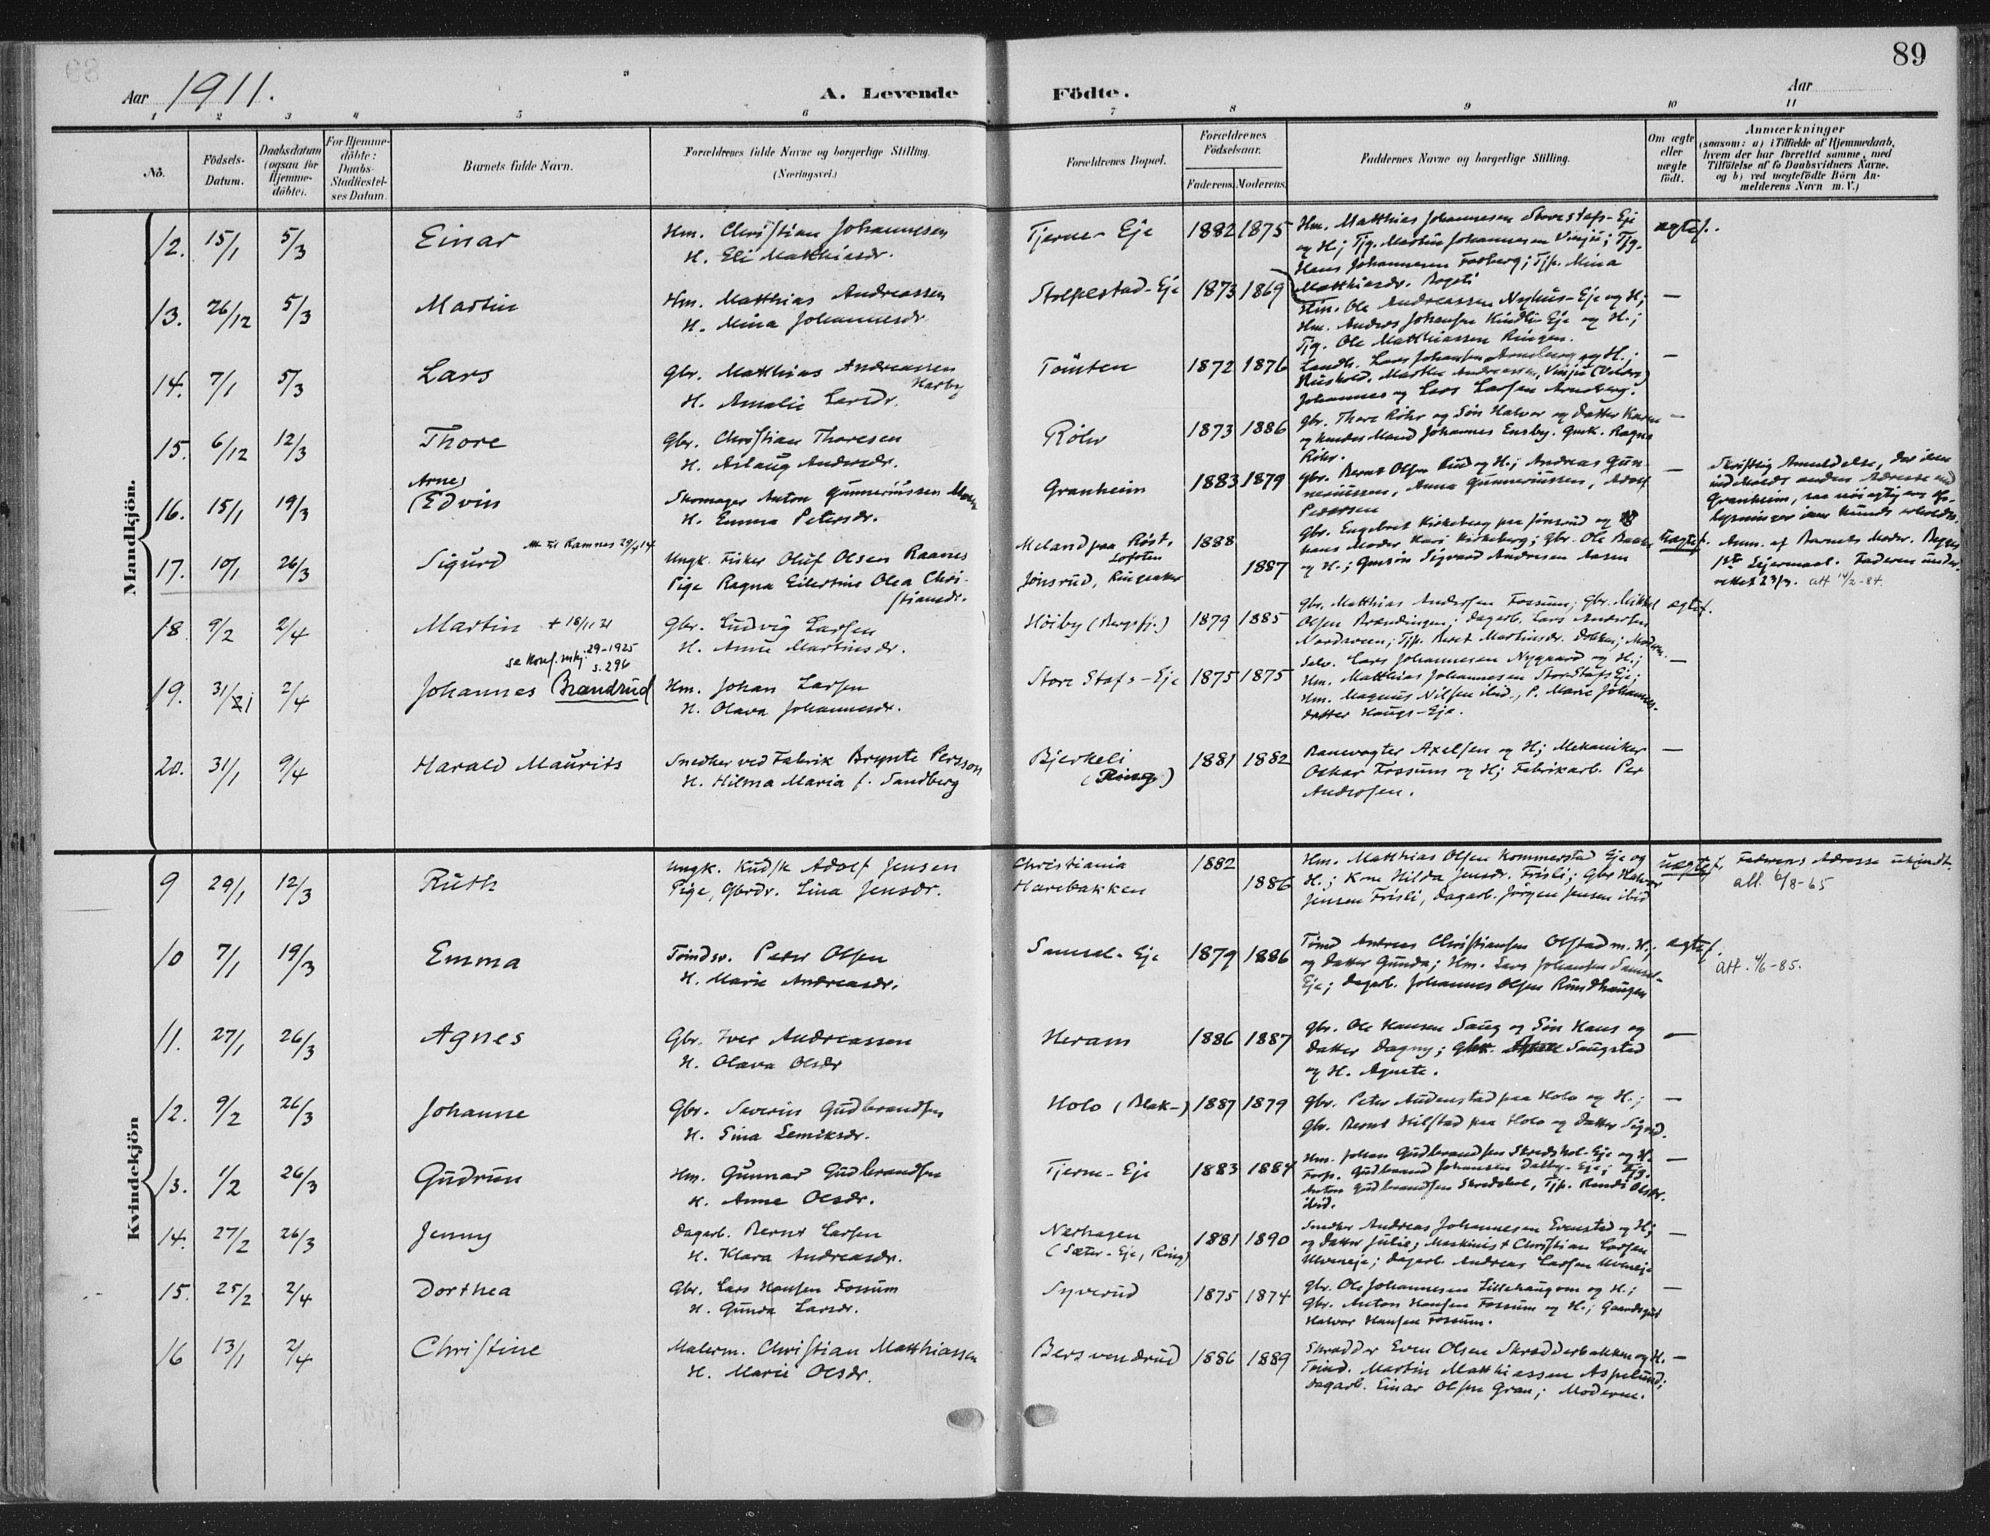 89
Aar 1911.
A. Levende Födte.
Aar
1 2 3 4 5 6 7 8 9 10 11
No.
Födsels-Datum.
Daabsdatum (ogsaa for Hjemmedöbte).
For Hjemmedöbte: Daabs-Stadfæstelses Datum.
Barnets fulde Navn.
Forældrenes fulde Navne og borgerlige Stilling. (Næringsvei.)
Forældrenes Bopæl.
Forældrenes Födselsaar.
Faderens. Moderens.
Faddernes Navne og borgerlige Stilling.
Om ægte eller uægte födt.
Anmærkninger
(saasom: a) i Tilfælde af Hjemmedaab, hvem der har forrettet samme, med Tilföielse af to Daabsvidners Navne. og b) ved uægtefödte Börn Anmelderens Navn m. V.)
Mandkjön.
12. 15/1 5/3 Einar Hm. Christian Johannesen Tjerne-Eje 1882 1875 Hm. Matthias Johannesen Store Stafs-Eje ægtef.
H. Eli Matthiasdr. og H; Tjg. Martin Johannesen Vinju; Tjg.
Hans Johannesen Fosberg; Tjp. Mina
Matthiasdr.
13. 26/12 5/3 Martin Hm. Matthias Andreassen Stolpestad-Eje 1873 1869 Hm. Ole Andreassen Nyhus-Eje og H; —
H. Mina Johannesdr. Hm. Andreas Johansen Kindli-Eje og H.;
Tjg. Ole Matthiassen Ringen.
14. 7/1 5/3 Lars Gbr. Matthias Andreassen Harby Tömten 1872 1876 Landh. Lars Johansen Arneberg og H.; —
H. Amalie Larsdr. Hushold. Marthe Andreassen, Vinju
Johannes og Lars Larsen Arneberg.
15. 6/12 12/3 Thore Gbr. Christian Thoresen Röhr 1873 1886 Gbr. Thore Röhr og Sön Halvor og Datter Karen —
H. Aslaug Andersdr. og hendes Mand Johannes Ensby. Gmk. Ragna
Röhr.
16. 15/1 19/3 Arne Edvin Skomager Anton Gunneriussen Moen Granheim 1883 1879 Gbr. Bernt Olsen Rud og H.; Andreas Gunneriussen, Anna Gunneriussen, Adolf —
H. Emma Petersdr. Pedersen
Skriftlig Anmeldelse, der ikke
indeholdt anden Adresse end
Granheim,
17. 10/1 26/3 Sigurd Ungk. Fisker Oluf Olsen Raanes Meland paa Röst, Lofoten 1888 Gbr. Engebret Kirkeberg paa Jönsrud og
Pige Ragna Eilertine Olea Christiansdr. Jönsrud, Ringsaker 1887 hans Moder Kari Kirkeberg; Gbr. Ole
og H.; Gmsön Sigvard Andersen Aasen
Uægtef. Anm. af Barnets Moder. Begges
1ste Leiermaal. Faderen underrettet 23/3. att 14/2-84.
18. 9/2 2/4 Martin + 18/11 21 Gbr. Ludvig Larsen Höiby 1879 1885 Gbr. Matthias Andersen Fossum; Gbr. Mikkel ægtef.
H. Anne Martinsdr. Olsen Brændingen; Dagarb. Lars Andersen
Nordsveen; Tjp. Beret Martinsdr. Dokken; Moderen.
19. 31/1 2/4 Johannes Brandrud Hm. Johan Larsen Store Stafs-Eje 1875 1875 Selv. Lars Johannesen Nygaard og H.; —
se Konf. mkj. 29-1925 s. 296
H. Olava Johannesdr. Hm. Matthias Johannesen Store Stafs Eje;
Hm. Magnus Nilsen ibid., P. Marie Johannesdatter Haugs-Eje.
20. 31/1 9/4 Harald Maurits Snedker ved Fabrik Brynte Persson Bjerkeli (Ring.) 1881 1882 Banevogter Axelsen og H; Mekaniker —
H. Hilma Maria f. Sandberg Oskar Fossum og H; Fabrikarb. Per
Andersen.
Kvindekjön
9 29/1 12/3 Ruth Ungk. Kudsk Adolf Jensen Christiania 1882 Hm. Matthias Olsen Kommerstad Eje og uægtef. Faderens Adresse ukjendt.
Pige, Gbrdr. Lina Jensdr. Harebakken 1886 H.; Kone Hilda Jensdr. Frisli; Gbr. Halvor att. 6/8-65
Jensen Frisli, Dagarb. Jörgen Jensen ibid
10 7/1 19/3 Emma Tömdsv. Peter Olsen Samsal-Eje 1879 1886 Tömd Andreas Christiansen Olstad m. H.; ægtef.
H. Marie Andreasdr. og Datter Gunda; Hm. Lars Johansen Samsal- att. 4/6-85.
Eje; Dagarb. Johannes Olsen Rundhaugen
11. 27/1 26/3 Agnes Gbr. Iver Andreassen Heram 1886 1887 Gbr. Ole Hansen Saug og Sön Hans og —
H. Olava Olsdr Datter Dagny; Gbk. Saugstad
og H. Agnete.
12. 9/2 26/3 Johanne Gbr. Severin Gudbrandsen Holo 1887 1879 Gbr. Peter Audenstad paa Holo og H.; —
H. Sina Lemiksdr. Gbr. Bernt Hilstad paa Holo og Datter Sigrid.
13. 1/2 26/3 Gudrun Hm. Gunnar Gudbrandsen Tjerne-Eje 1883 1884 Hm. Johan Gudbrandsen Skredshol-Eje og H. —
H. Anne Olsdr. Forp. Gudbrand Johansen Dalby-Eje; Tjg.
Anton Gudbrandsen Skredshol, Tjp. Randi Olsdr.
ibid.
14. 27/2 26/3 Jenny Dagarb. Bernt Larsen Nerhagen 1881 1890 Snedker Andreas Johannesen Evenstad og H; —
H. Klara Andreasdr. (Sæter-Eje, Ring) og Datter Julie; Maskinist Christian Larsen
Ulveneje; Dagarb. Andreas Larsen Ulveneje
15. 25/2 2/4 Dorthea Gbr. Lars Hansen Fossum Syverud 1875 1874 Gbr. Ole Johannesen Lillehaugom og H.; —
H. Gunda Larsdr. Gbr. Anton Hansen Fossum og H.; Gaardsgut
Halvor Hansen Fossum.
16 13/1 2/4 Christine Malerm. Christian Matthiassen Bersvendrud 1886 1889 Skrædder Even Olsen Skrædderbakken og H. —
H. Marie Olsdr. Tömd. Martin Matthiassen Aspelund;
Dagarb. Einar Olsen Gran; Moderen.